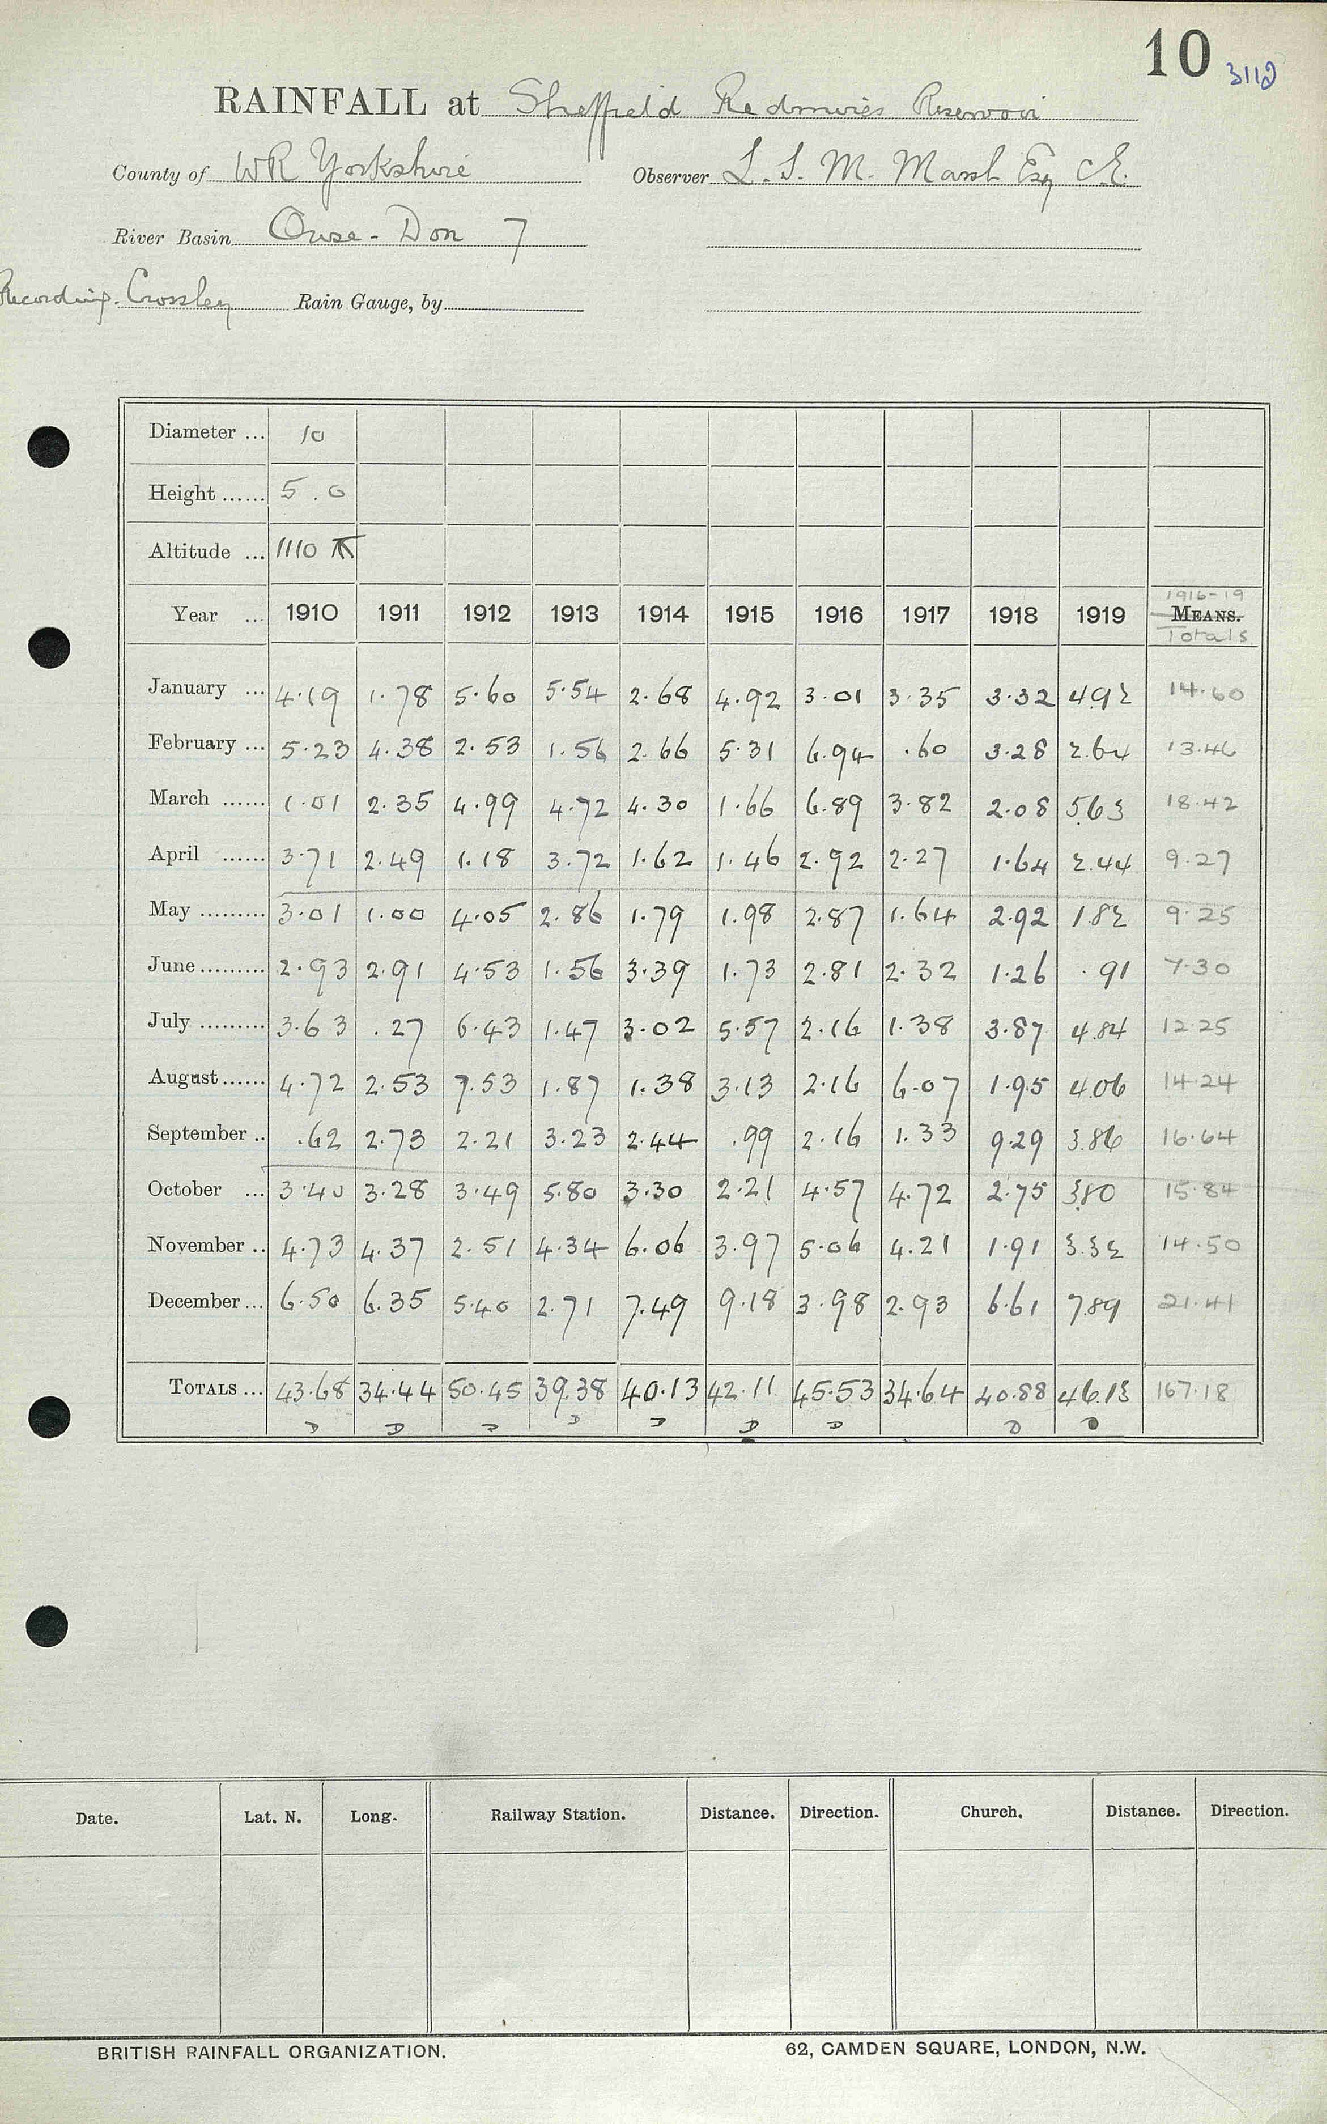 10 3112
RAINFALL at Sheffield Redmires Reservoir
County of WR Yorkshire Observer L. S. M. Marsh Esq CE.
River Basin Ouse - Don 7
Recording. Crossley Rain Gauge, by
Diameter ... 10
Height ...... 5.0
Altitude ... 1110
Year ... 1910 1911 1912 1913 1914 1915 1916 1917 1918 1919 1916-19 MEANS. Totals
January ... 4.19 1.78 5.60 5.54 2.68 4.92 3.01 3.35 3.32 4.92 14.60
February ... 5.23 4.38 2.53 1.56 2.66 5.31 6.94 .60 3.28 2.64 13.46
March ...... 1.01 2.35 4.99 4.72 4.30 1.66 6.89 3.82 2.08 5.63 18.42
April ...... 3.71 2.49 1.18 3.72 1.62 1.46 2.92 2.27 1.64 2.44 9.27
May ......... 3.01 1.00 4.05 2.86 1.79 1.98 2.87 1.64 2.92 1.82 9.25
June ......... 2.93 2.91 4.53 1.56 3.39 1.73 2.81 2.32 1.26 .91 7.30
July ......... 3.63 .27 6.43 1.47 3.02 5.57 2.16 1.38 3.87 4.84 12.25
August ...... 4.72 2.53 7.53 1.87 1.38 3.13 2.16 6.07 1.95 4.06 14.24
September .. .62 2.73 2.21 3.23 2.44 .99 2.16 1.33 9.29 3.86 16.64
October ... 3.40 3.28 3.49 5.80 3.30 2.21 4.57 4.72 2.75 3.80 15.84
November .. 4.73 4.37 2.51 4.34 6.06 3.97 5.06 4.21 1.91 3.32 14.50
December ... 6.50 6.35 5.40 2.71 7.49 9.18 3.98 2.93 6.61 7.89 21.41
TOTALS ... 43.68 34.44 50.45 39.38 40.13 42.11 45.53 34.64 40.88 46.13 167.18
Date. Lat. N. Long. Railway Station. Distance. Direction. Church. Distance. Direction.
BRITISH RAINFALL ORGANIZATION. 62, CAMDEN SQUARE, LONDON, N.W.